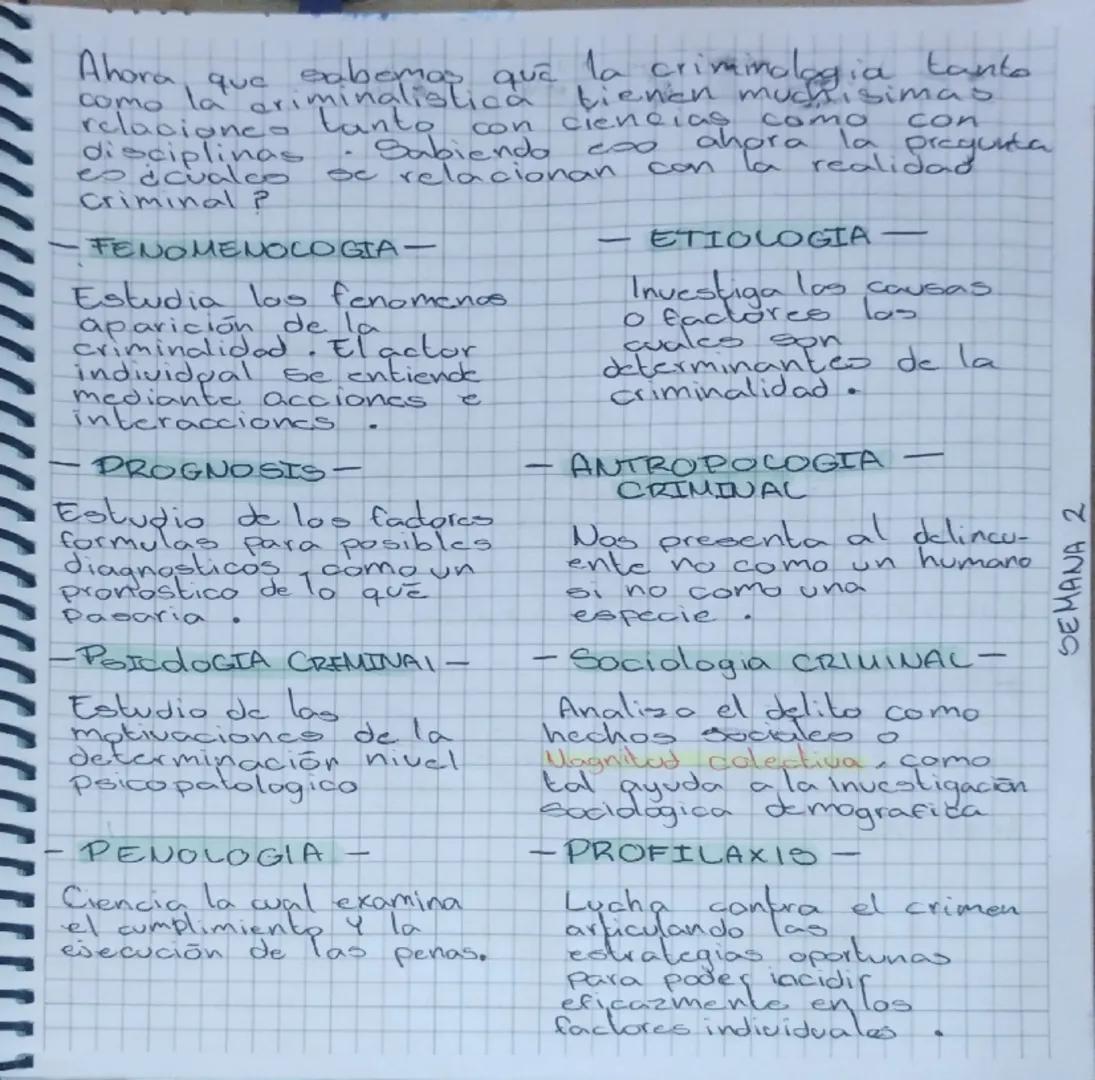 Ahora que sabemos que la criminologia tanto
como la criminalistica tienen muchisimas
relaciones tanto con ciencias como con
disciplinas. Sabiendo eso ahora la pregunta
es ¿cuales se relacionan con la realidad
criminal?
- FENOMENOLOGIA -
Estudia los fenomenos
aparición de la
criminalidad. El actor
individual se entiende
mediante acciones e
interacciones.
- ETIOLOGIA -
Investiga las causas
o factores los
cuales son
determinantes de la
criminalidad.
- PROGNOSIS -
Estudio de los factores
formulas para posibles
diagnosticos, como un
pronostico de lo que
pasaria.
- ANTROPOLOGIA -
CRIMINAL
Nos presenta al delincu-
ente no como un humano
si no como una
especie.
- PSICOLOGIA CREMINAL -
Estudio de las
motivaciones de la
determinación nivel
psicopatologico
- Sociologia CRIMINAL -
Analiza el delito como
hechos sociales o
Magnitud colectiva, como
tal ayuda a la investigación
sociológica demografica
- PENOLOGIA -
Ciencia la cual examina
el cumplimiento y la
ejecución de las penas.
- PROFILAXIS -
Lucha contra el crimen
articulando las
estrategias oportunas
para poder incidir
eficazmente en los
factores individuales.
SEMANA 2